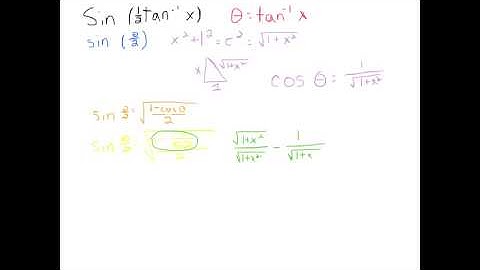 Sin (½tan⁻¹ x) θ = tan⁻¹ x
sin (θ/2) x² + 1² = c² = √1+x²
x √1+x²
1
cos θ = 1/√1+x²
sin θ/2 = √(1-cosθ)/2
sin θ/2 = √ /2 √1+x²/√1+x² - 1/√1+x